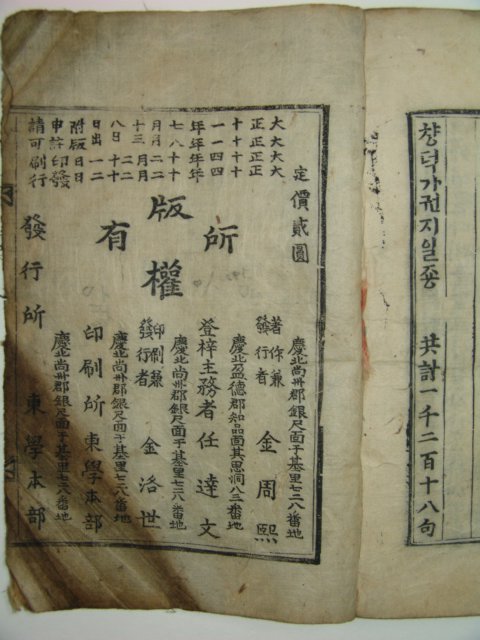 챵덕가권지일죵
共計一千二百十八句
定價貳圓
大正十四年十二月二十二日發行
大正十四年十二月二十一日印刷
大正十一年八月三日出版許可
大正十一年七月十八日附申請
版權所有
慶北尚州郡銀尺面于基里七三八番地
著作兼發行者 金周熙
慶北盈德郡知品面其思洞八三番地
登梓主務者 任達文
慶北尚州郡銀尺面于基里七三八番地
印刷兼發行者 金洛世
慶北尚州郡銀尺面于基里七三八番地
印刷所 東學本部
慶北尚州郡銀尺面于基里七三八番地
發行所 東學本部